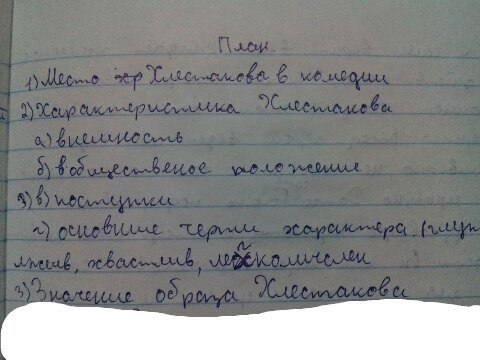 План
1) Место хр Хлестакова в комедии
2) Характеристика Хлестакова
а) внешность
б) вобщественое положение
3) в) поступки
г) основные черты характера (глуп
лжив, хвастлив, легкомыслен
3) Значение образа Хлестакова